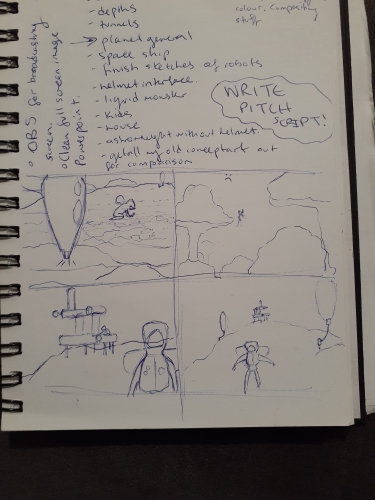 colour, compositing
stuff
- depths
- tunnels
→ planet general
- Space ship
- finish sketches of robots
- helmet interface
- liquid monster
- kids
- house
- astronaught without helmet.
- get all my old conceptart out
for comparison
WRITE
PITCH
SCRIPT!
o OBS for broadcasting
screen.
o Clean full screen image
Powerpoint.